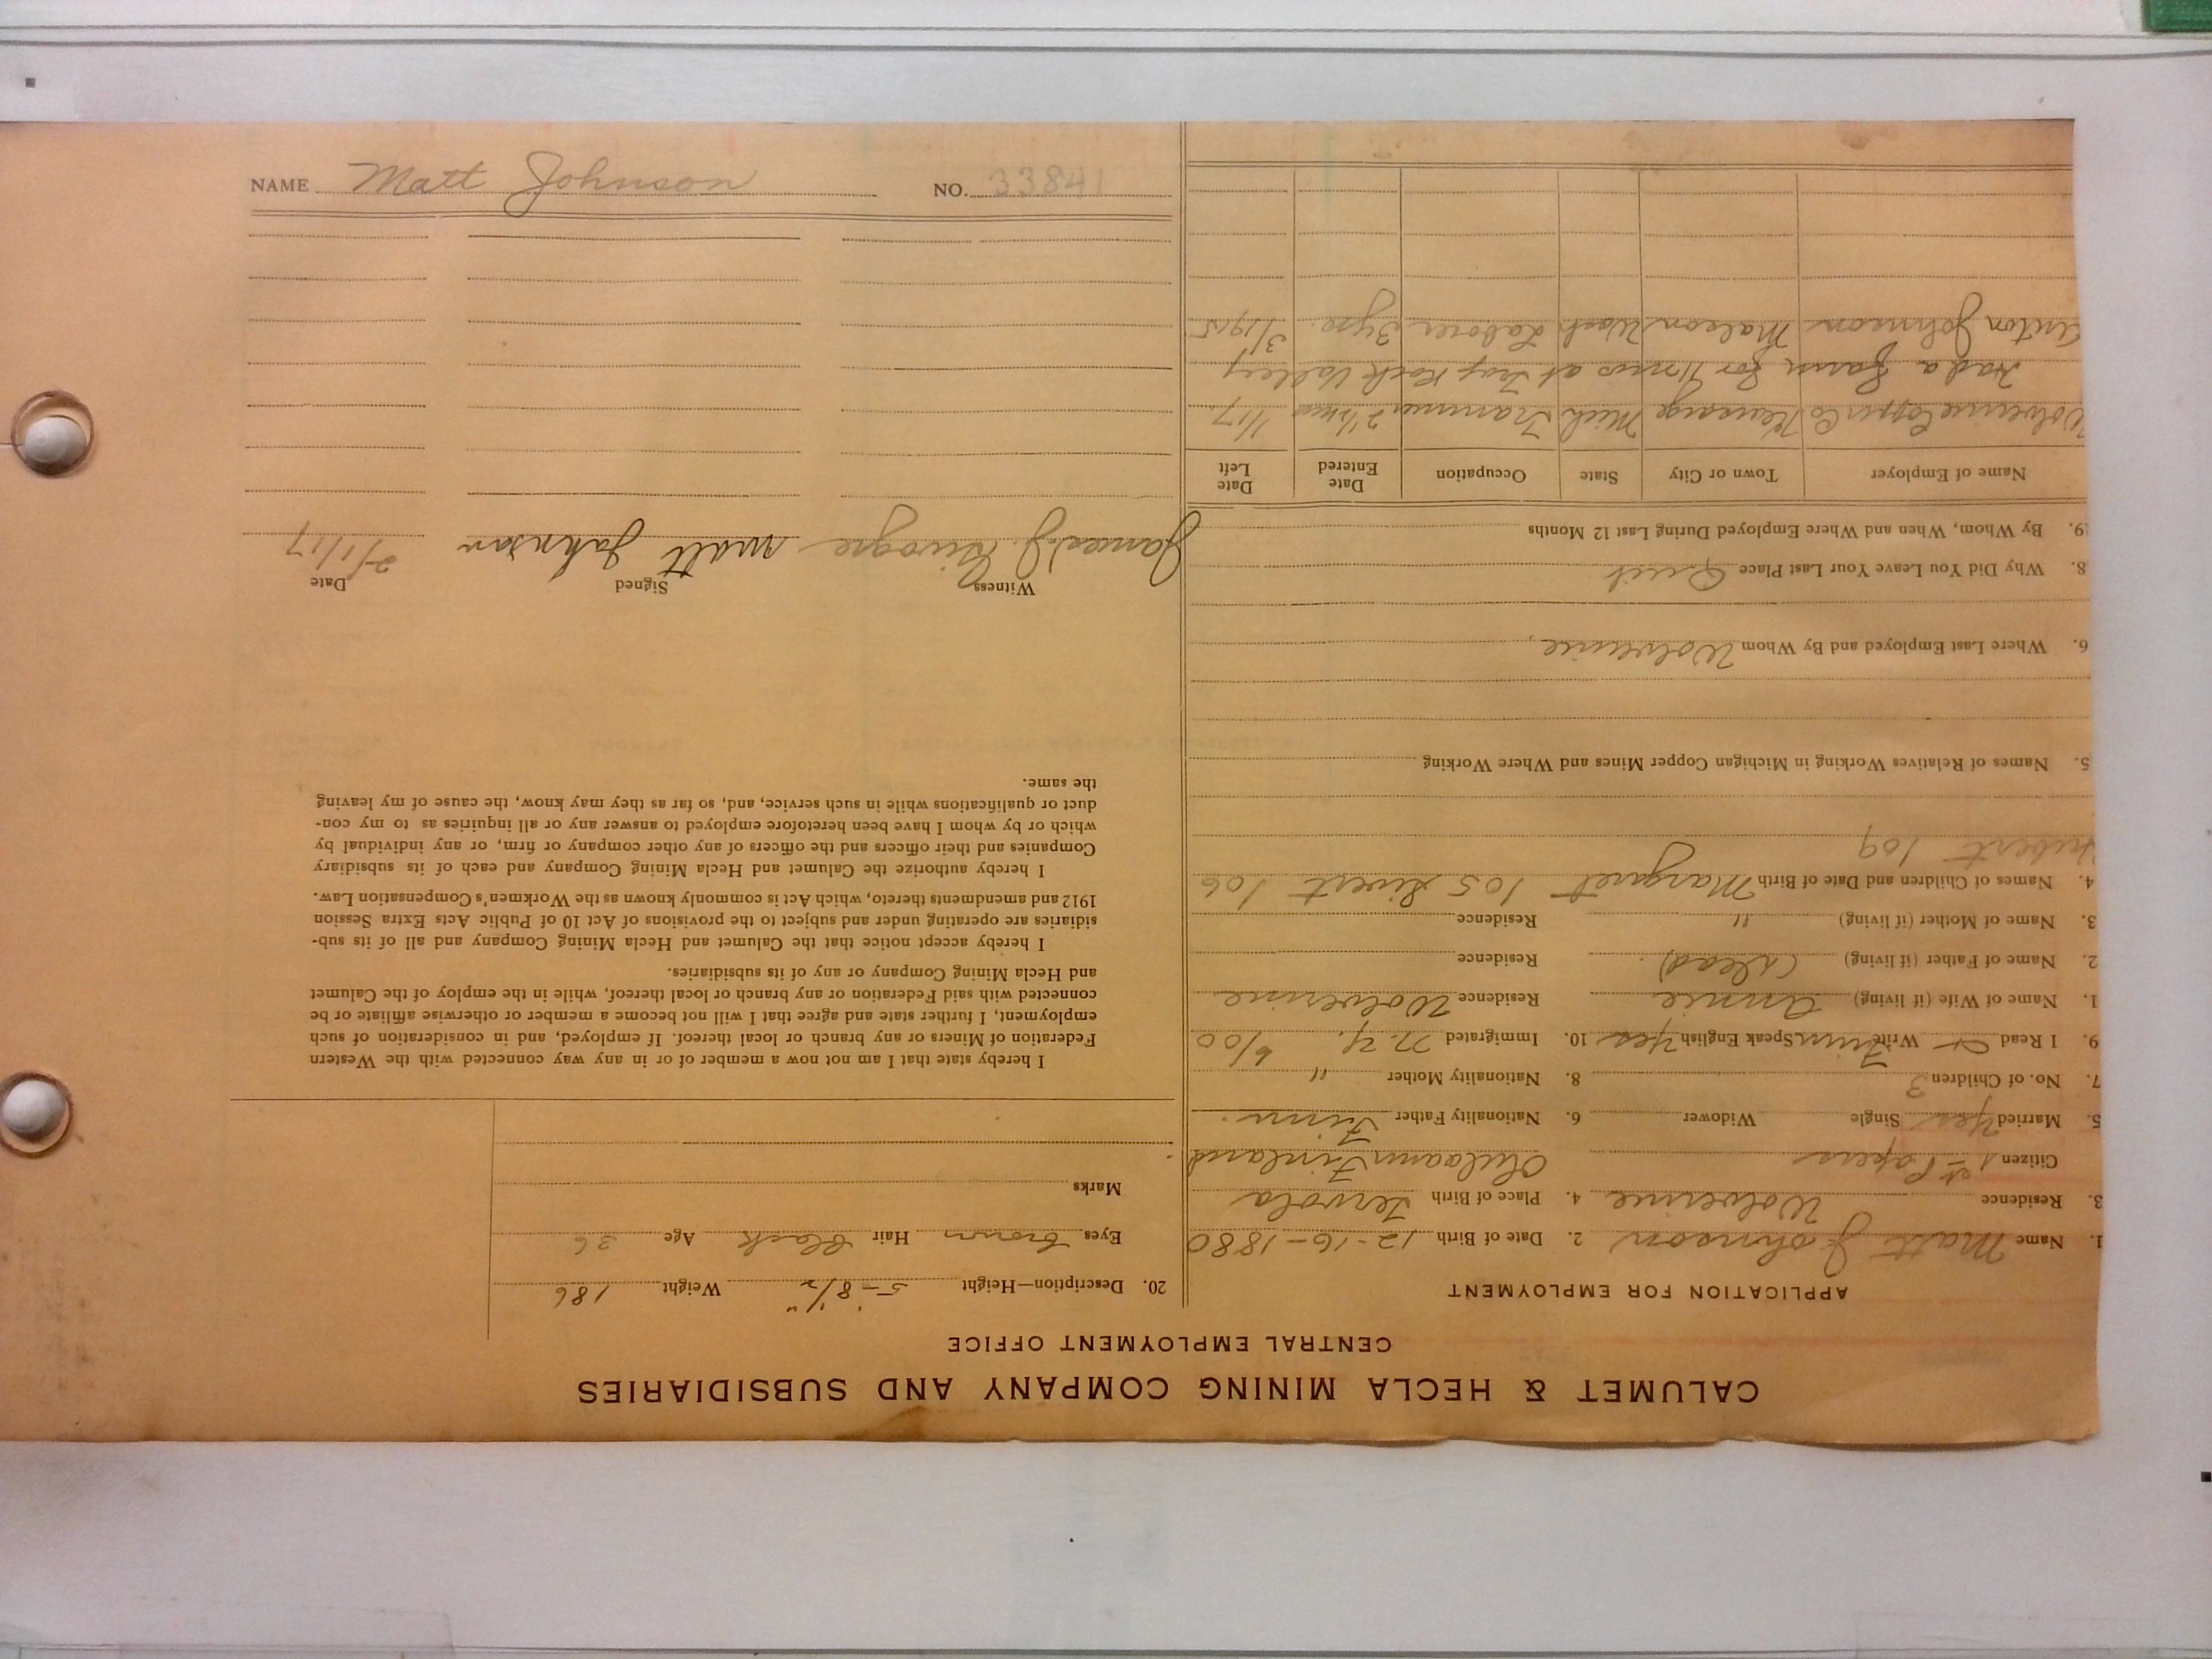 CALUMET & HECLA MINING COMPANY AND SUBSIDIARIES
CENTRAL EMPLOYMENT OFFICE
APPLICATION FOR EMPLOYMENT
1. Name Matt Johnson 2. Date of Birth 12-16-1880
3. Residence Wolverine 4. Place of Birth Tervola
Citizen 1st Papers Finland
5. Married Yes Single Widower 6. Nationality Father Finn
7. No. of Children 3 8. Nationality Mother "
9. I Read Write Finn Speak English Yes 10. Immigrated N.Y. 6/00
1. Name of Wife (if living) Annie Residence Wolverine
2. Name of Father (if living) (dead) Residence
3. Name of Mother (if living) " Residence
4. Names of Children and Date of Birth Margaret 105 Sivert 106
Hubert 109
5. Names of Relatives Working in Michigan Copper Mines and Where Working
6. Where Last Employed and By Whom Wolverine
8. Why Did You Leave Your Last Place Quit
19. By Whom, When and Where Employed During Last 12 Months
Name of Employer Town or City State Occupation Date Entered Date Left
Wolverine Copper Co Kearsarge Mich Trammer 2 1/2 mos 1/17
Had a farm for 4 mos at Trap Rock Valley
Anton Johnson Wash Laborer 3 yrs. 3/1915
20. Description—Height 5-8 1/2" Weight 186
Eyes brown Hair Black Age 36
Marks
I hereby state that I am not now a member of or in any way connected with the Western
Federation of Miners or any branch or local thereof. If employed, and in consideration of such
employment, I further state and agree that I will not become a member or otherwise affiliate or be
connected with said Federation or any branch or local thereof, while in the employ of the Calumet
and Hecla Mining Company or any of its subsidiaries.
I hereby accept notice that the Calumet and Hecla Mining Company and all of its sub-
sidiaries are operating under and subject to the provisions of Act 10 of Public Acts Extra Session
1912 and amendments thereto, which Act is commonly known as the Workmen's Compensation Law.
I hereby authorize the Calumet and Hecla Mining Company and each of its subsidiary
Companies and their officers and the officers of any other company or firm, or any individual by
which or by whom I have been heretofore employed to answer any or all inquiries as to my con-
duct or qualifications while in such service, and, so far as they may know, the cause of my leaving
the same.
Witness Signed Date
James J. matt Johnson 2/1/17
NAME Matt Johnson NO. 33841